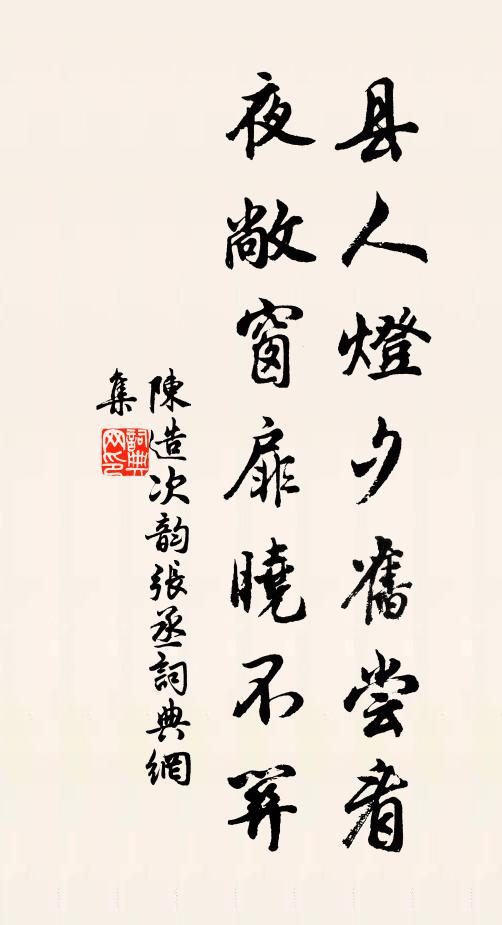 县人燈夕舊尝看
夜敞窗扉曉不関
陳造次韵張丞詞典網
集
詞典网印